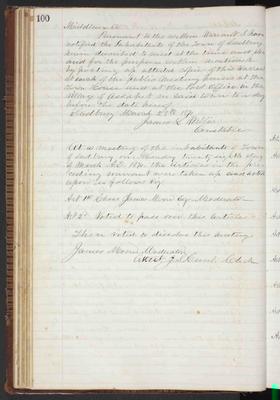 100
Middlesex SS.
Pursuant to the within Warrant I have
notified the Inhabitants of the Town of Sudbury
herein described to meet at the time and place
and for the purpose within mentioned
by posting up attested
at each of the public Meeting houses at the
Town House and at the Post Office in the
village of in said town
before the date hereof
Sudbury March
James L.
Constable
At a meeting of the inhabitants of Town
of Sudbury on Monday twenty
of March the articles in the pre-
ceding warrant were taken up and acted
upon as follows viz
Art 1st Chose James Moore Esq. Moderator
Art 2d Voted to pass over this article
Then voted to dissolve this meeting
James Moore Moderator
Attest Clerk